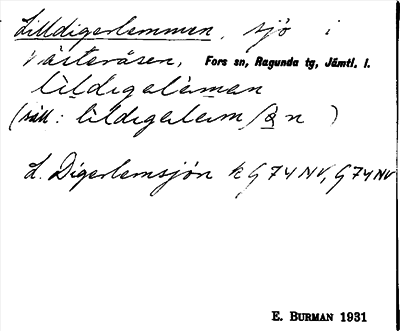 Lilldigerlemmen, sjö i
Västeråsen, Fors sn, Ragunda tg, Jämtl. l.
lìldigəlèman
(säll: lìldigərlɛm/ən )
L. Digerlemsjön k G 74 NV, G 74 NV
E. BURMAN 1931